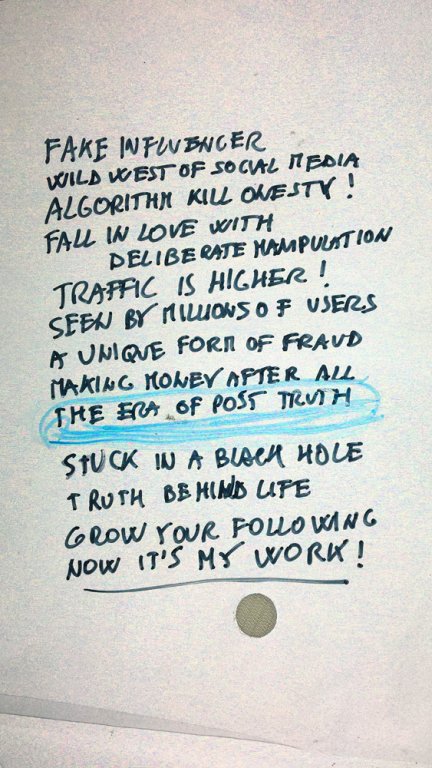 FAKE INFLUENCER
WILD WEST OF SOCIAL MEDIA
ALGORITHM KILL ONESTY!
FALL IN LOVE WITH
DELIBERATE MAMPULATION
TRAFFIC IS HIGHER!
SEEN BY MILLIONS OF USERS
A UNIQUE FORM OF FRAUD
MAKING MONEY AFTER ALL
THE ERA OF POST TRUTH
STUCK IN A BLACK HOLE
TRUTH BEHIND LIFE
GROW YOUR FOLLOWING
NOW IT'S MY WORK!